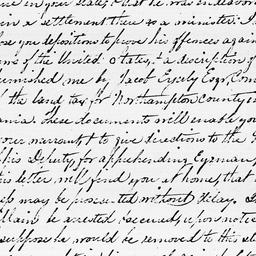 in your state, that he was endeavor
in a settlement there as a minister. I
lose you depositions to prove his offences again
ws of the United States, & a description of
furnished me by Jacob Eyerly Esqr. Com
f the land tax for Northampton County in
ania. These documents will enable you
your warrant & to give directions to the
his Deputy, for apprehending Eyerman,
his letter will find you at home, that
may be prosecuted without delay. I
Villain be arrested & secured, upon notice
suppose he would be removed to this sta